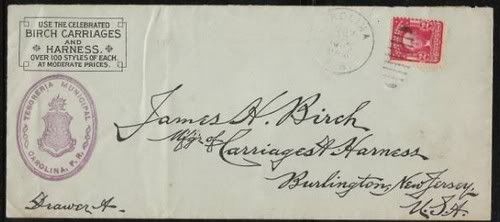 USE THE CELEBRATED
BIRCH CARRIAGES
AND
HARNESS.
OVER 100 STYLES OF EACH
AT MODERATE PRICES.
TESORERIA MUNICIPAL
CAROLINA, P. R.
James H. Birch
Mf'gr of Carriages & Harness
Burlington, New Jersey,
U.S.A.
Drawer A.